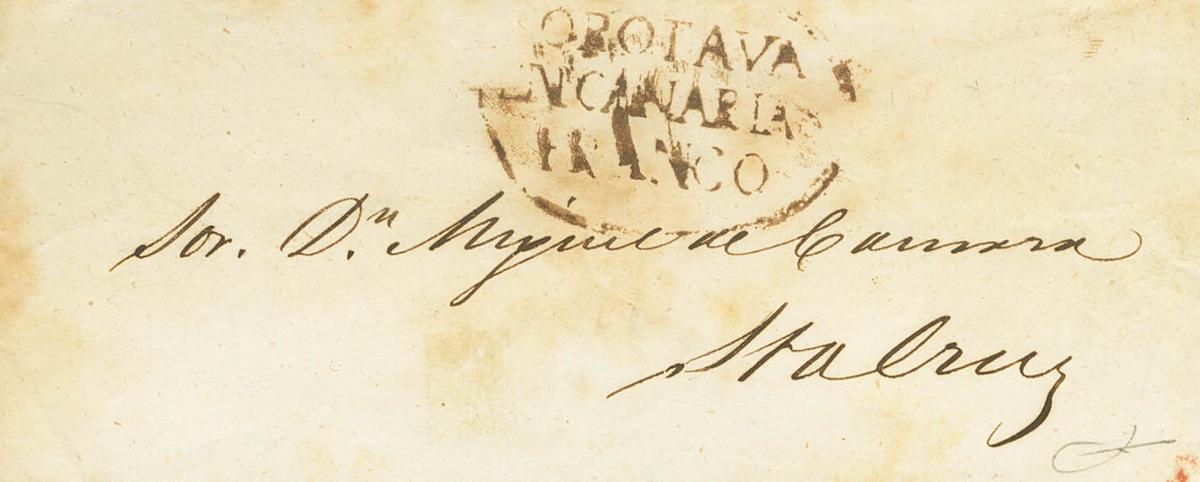 OROTAVA
YCANARIA
FRANCO
Sor. Dn. Miguel de Camara
Sta Cruz